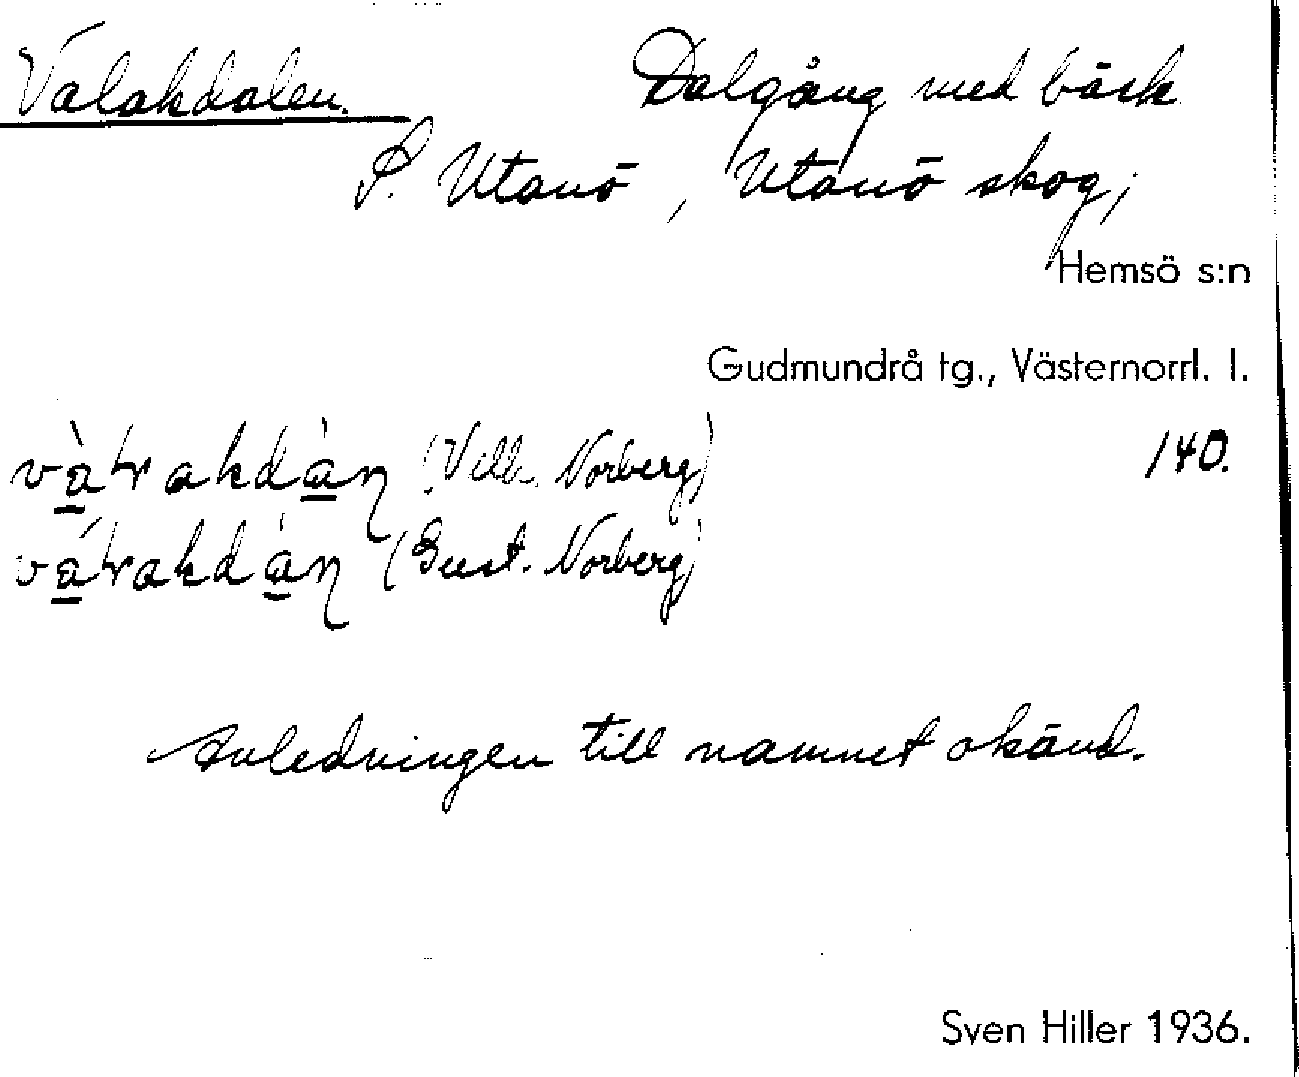 Valakdalen. Dalgång med bäck
S. Utanö, Utanö skog;
Hemsö s:n
Gudmundrå tg., Västernorrl. l.
(Vilh. Norberg) 140.
(Gust. Norberg)
Anledningen till namnet okänd.
Sven Hiller 1936.